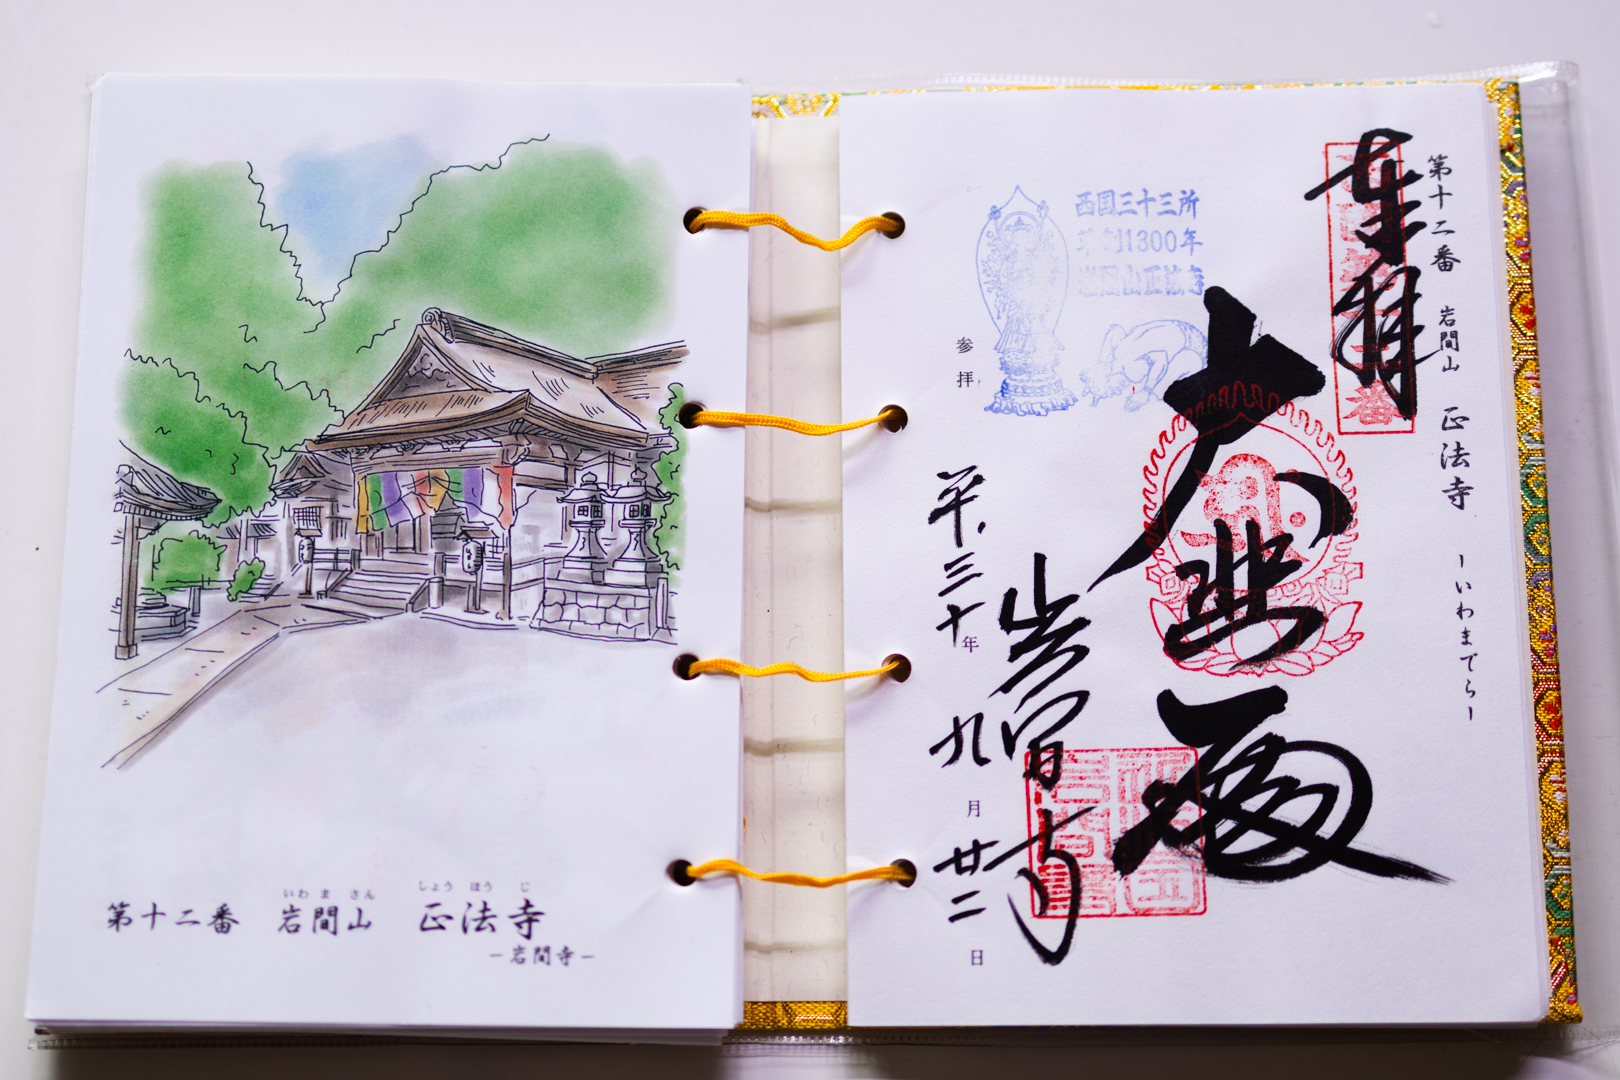 いわ ま さん しょう ほう じ
第十二番 岩間山 正法寺
－岩間寺－
第十二番 岩間山 正法寺 －いわまでら－
奉拝
大悲殿
岩間寺
西国三十三所
草創1300年
岩間山正法寺
参拝
平、三十年九月廿二日